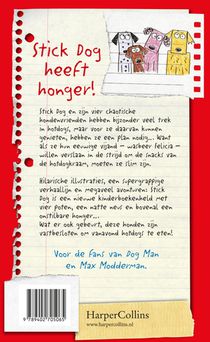 Stick Dog
heeft
honger!
Stick Dog en zijn vier chaotische
hondenvrienden hebben bijzonder veel trek
in hotdogs, maar voor ze daarvan kunnen
genieten, hebben ze een plan nodig... Want
als ze hun eeuwige vijand – wasbeer Felicia –
willen verslaan in de strijd om de snacks van
de hotdogkraam, moeten ze slim zijn.
Hilarische illustraties, een supergrappige
verhaallijn en megaveel avonturen: Stick
Dog is een nieuwe kinderboekenheld met
vier poten, een natte neus en bovenal een
onstilbare honger...
Wat er ook gebeurt, deze honden zijn
vastbesloten om vanavond hotdogs te eten!
Voor de fans van Dog Man
en Max Modderman.
HarperCollins
www.harpercollins.nl
9789402705065